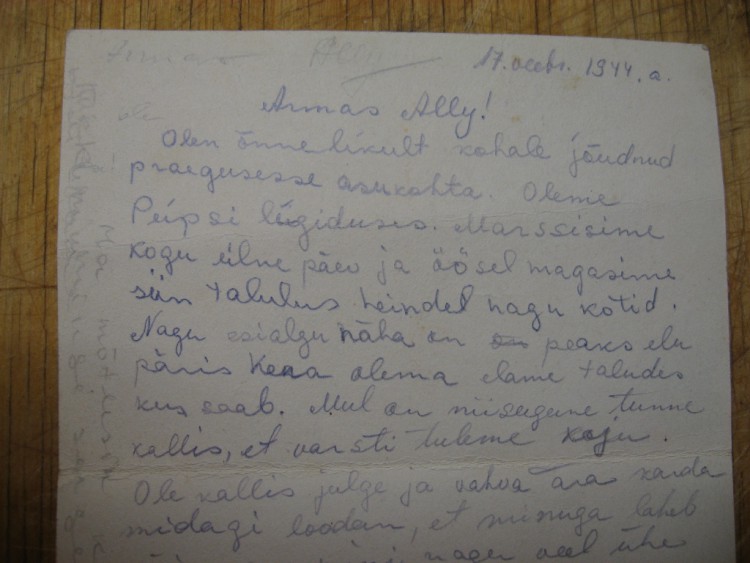 17. veebr. 1944. a.
Armas Ally!
Olen õnnelikult kohale jõudnud
praegusesse asukohta. Oleme
Peipsi ligiduses. Marssisime
kogu eilne päev ja öösel magasime
siin talulus heindel nagu kotid.
Nagu esialgu näha on peaks elu
päris kena olema elame taludes
kus saab. Mul on niisugune tunne
kallis, et varsti tuleme koju.
Ole kallis julge ja vahva ära karda
midagi loodan, et minuga läheb
nagu veel ühe
Armas Ally
ole
Ma mõtlesin